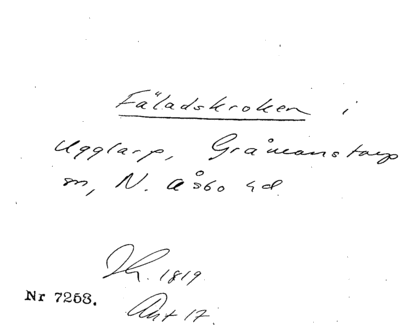 Fäladskroken i
Ugglarp, Gråmanstorp
sn, N. Åsbo hd.
Th. 1819
Nr 7258.
Akt 17.